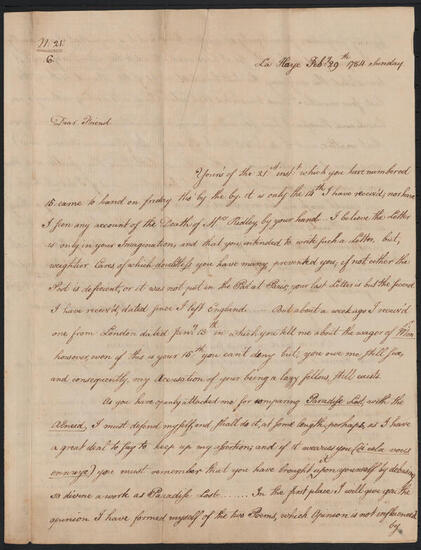 No. 21.
6.
La Haye Feby. 29th 1784 Sunday
Dear Friend
Yours of the 21st. inst. which you have numbered
15. came to hand on friday tho' by the by it is only the 14th I have receiv'd, nor have
I seen any account of the Death of Mrs Ridley by your hand. I believe the Letter
is only in your Imagination, and that you intended to write such a Letter, but,
weightier Cares of which doubtless you have many, prevented you, if not either the
Post is deficient, or it was not put in the Post at Paris; your last Letter is but the second
I have receiv'd, dated since I left England. But about a week ago I receiv'd
one from London dated Jany. 13th in which you tell me about the wager of
however, won if this is your 15th you can't deny but, you owe me, still six,
and consequently, my Accusation of your being a lazy fellow, still exists.
As you have openly attacked me for comparing Paradise Lost, with the
Æneid, I must defend myself, and shall do it, at some length, perhaps, as I have
a great deal to say to keep up my assertions; and if it wearies you (si cela vous
ennuye) you must remember that you have brought upon yourself by debasing
so divine a work as Paradise Lost. In the first place I will give you the
opinion I have formed myself of the two Poems, which Opinion is not influenced
by